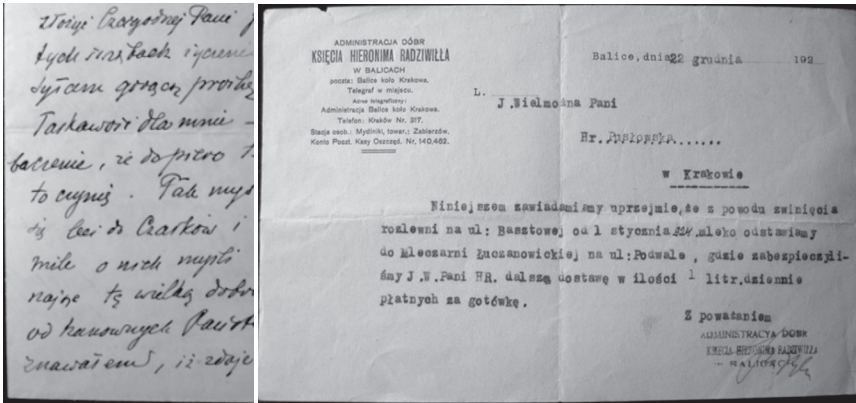 złożyć Czcigodnej Pani
tych
gorącą prośbę
dla mnie —
, że dopiero
to czynię. Tak
się do i
mile o nich myśli
tę wielką
od
, iż zdaje
ADMINISTRACJA DÓBR
KSIĘCIA HIERONIMA RADZIWIŁŁA
W BALICACH
poczta: Balice koło Krakowa.
Telegraf w miejscu.
Adres telegraficzny:
Administracja Balice koło Krakowa.
Telefon: Kraków Nr. 317.
Stacja osob.: Mydlniki, towar.: Zabierzów.
Konto Poczt. Kasy Oszczęd. Nr. 140,462.
Balice, dnia 22 grudnia 192
L.
J.Wielmożna Pani
Hr. Pusłowska......
w Krakowie
Niniejszem zawiadamiamy uprzejmie, że z powodu zwinięcia
rozlewni na ul: Basztowej od 1 stycznia 924.mleko odstawiamy
do Mleczarni Łuczanowickiej na ul:Podwale , gdzie zabezpieczyli-
śmy J.W.Pani HR. dalszą dostawę w ilości 1 litr.dziennie
płatnych za gotówkę.
Z poważaniem
ADMINISTRACYA DÓBR
KSIĘCIA HIERONIMA RADZIWIŁŁA
BALICACH